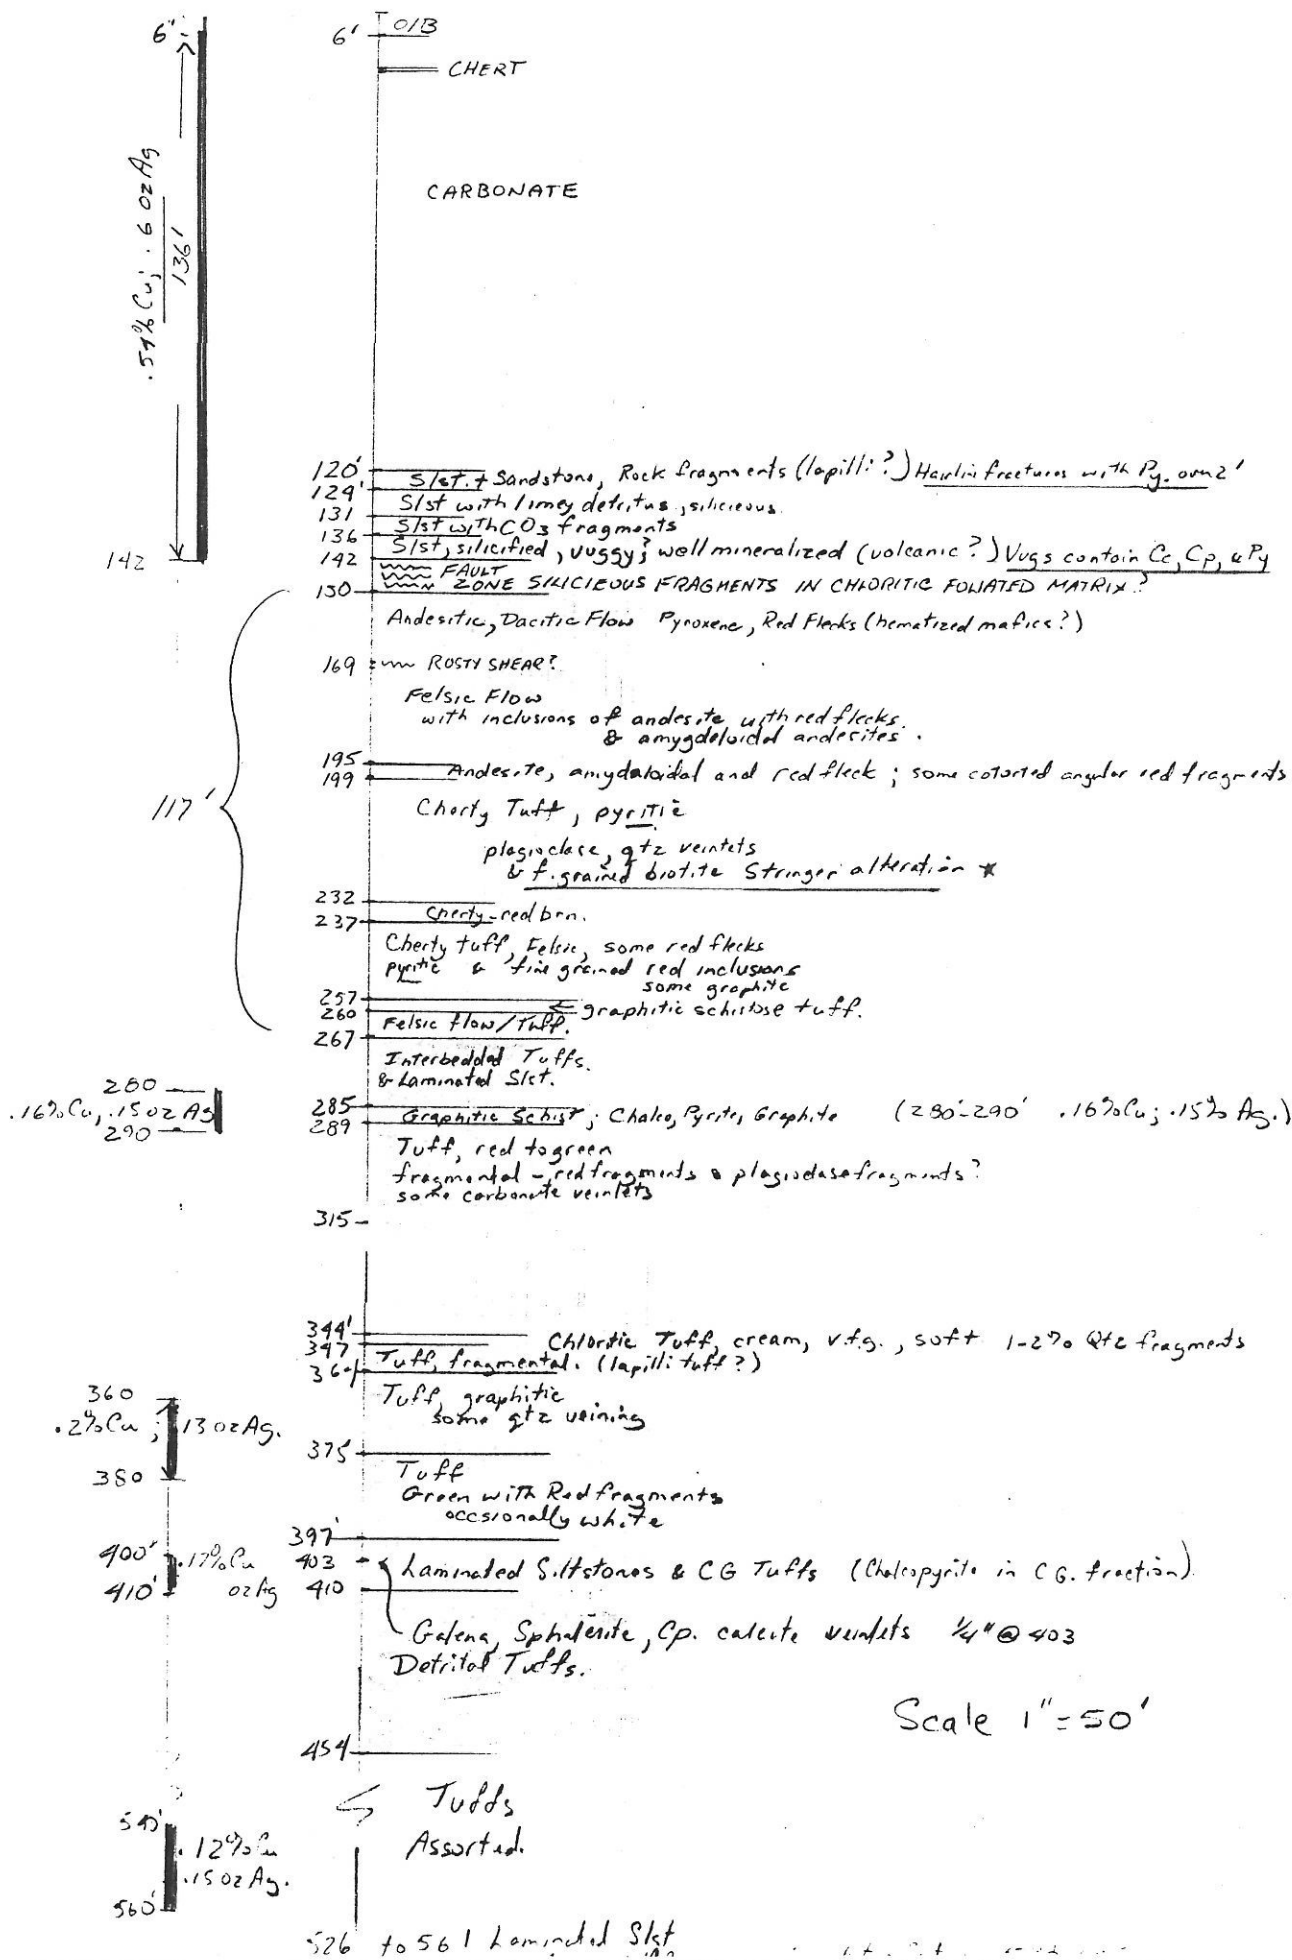 6' O/B
6'
CHERT
CARBONATE
.6 oz Ag
136'
120' Slst. + Sandstone, Rock fragments (lapilli?) Hairlin fractures with Py. over 2'
129' Slst with limey detritus, silicieous
131 Slst with CO3 fragments
136 Slst, silicified, vuggy; well mineralized (volcanic?) Vugs contain Cc, Cp, & Py
142
142 FAULT
ZONE SILICIEOUS FRAGMENTS IN CHLORITIC FOLIATED MATRIX?
150
Andesitic, Dacitic Flow Pyroxene, Red Flecks (hematized mafics?)
169 ROSTY SHEAR?
Felsic Flow
with inclusions of andesite with red flecks.
& amygdeloidal andesites.
195 Andesite, amydaloidal and red fleck; some angular red fragments
199
117'
Cherty Tuff, pyritic
plagioclase, qtz veinlets
& f. grained biotite Stringer alteration *
232 Cherty-red brn.
237
Cherty tuff, Felsic, some red flecks
pyritic & fine grained red inclusions
some graphite
257 ← graphitic schistose tuff.
260 Felsic flow/Tuff.
267
Interbedded Tuffs.
& Laminated Slst.
280
.16% Cu, .15 oz Ag
290
285 Graphitic Schist; Chalco, Pyrite, Graphite (280'-290' .16% Cu; .15% Ag.)
289
Tuff, red to green
fragmental - red fragments & plagioclase fragments?
some carbonate veinlets
315
344' Chloritic Tuff, cream, v.f.g., soft 1-2% Qtz fragments
347 Tuff, fragmental. (lapilli tuff?)
360
.2% Cu; .13 oz Ag.
380
Tuff, graphitic
some qtz veining
375
Tuff
Green with Red fragments
occsionally white
397'
400' .17% Cu
410' oz Ag
403 Laminated Siltstones & CG Tuffs (Chalcopyrite in CG. fraction)
410
Galena, Sphalerite, Cp. calcite veinlets 1/4" @ 403
Detrital Tuffs.
Scale 1" = 50'
454
Tuffs
Assorted.
.12% Cu
.15 oz Ag.
560'
526 to 561 Laminated Slst